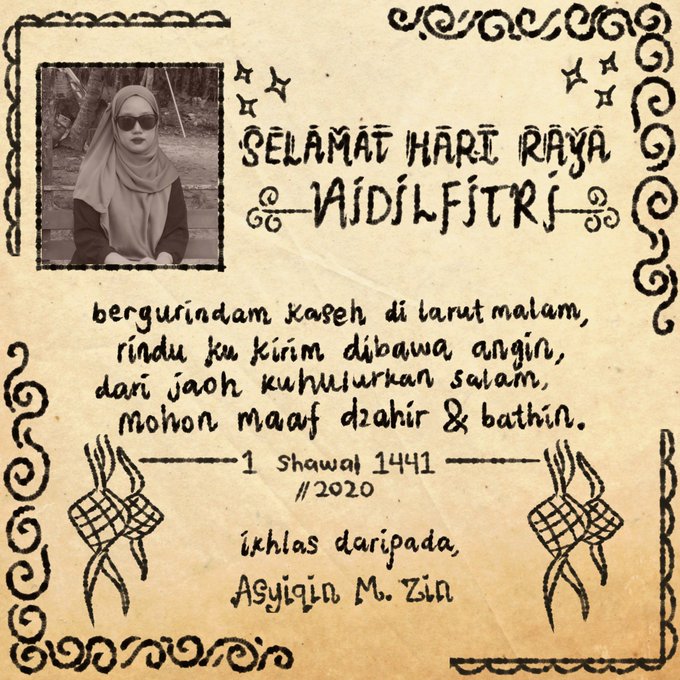 SELAMAT HARI RAYA
AIDILFITRI
bergurindam kaseh di larut malam,
rindu ku kirim dibawa angin,
dari jaoh kuhulurkan salam,
mohon maaf dzahir & bathin.
1 Shawal 1441
//2020
ikhlas daripada,
Asyiqin M. Zin